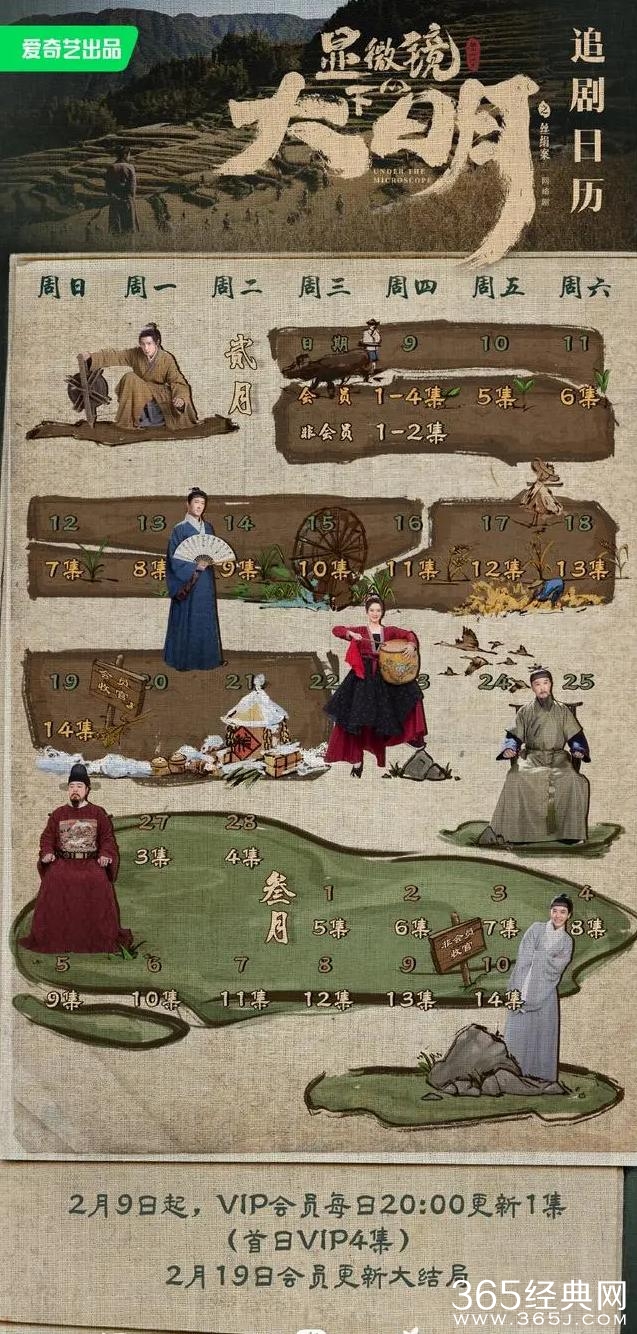 爱奇艺出品
显微镜
下の
大明
之丝绢案
UNDER THE
MICROSCOPE
追剧日历
周日 周一 周二 周三 周四 周五 周六
贰月
日期 9 10 11
会员 1-4集 5集 6集
非会员 1-2集
12 13 14 15 16 17 18
7集 8集 9集 10集 11集 12集 13集
19 20 21 22 3 24 25
会员
收官
14集
27 28
3集 4集
叁月
1 2 3 4
5集 6集 7集 8集
非会员
收官
5 6 7 8 9 10
9集 10集 11集 12集 13集 14集
2月9日起，VIP会员每日20:00更新1集
（首日VIP4集）
2月19日会员更新大结局
365经典网
www.365j.com